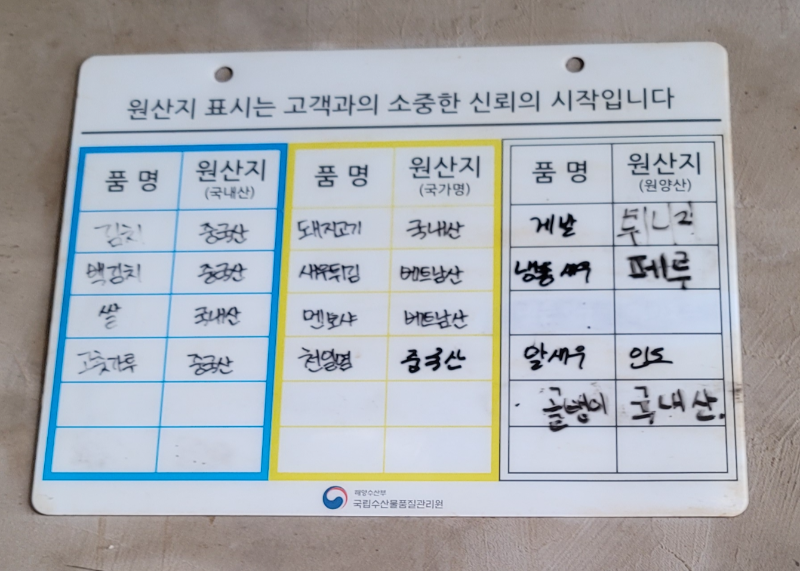 원산지 표시는 고객과의 소중한 신뢰의 시작입니다
품 명 원산지 (국내산) 품 명 원산지 (국가명) 품 명 원산지 (원양산)
김치 중국산 돼지고기 국내산 게발 튀니지
백김치 중국산 새우튀김 베트남산 냉동새우 페루
쌀 국내산 멘보샤 베트남산
고춧가루 중국산 천일염 중국산 알새우 인도
골뱅이 국내산.
해양수산부
국립수산물품질관리원